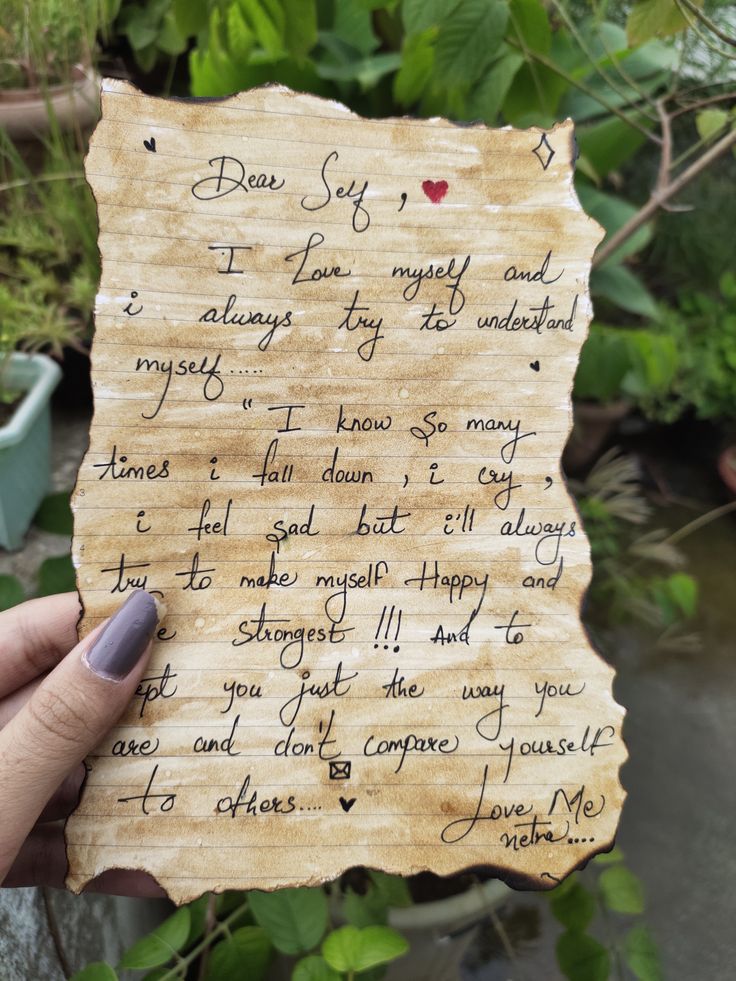 Dear Self,
I Love myself and
i always try to understand
myself.....
" I know So many
times i fall down , i cry ,
i feel sad but i'll always
try to make myself Happy and
Strongest !!! And to
you just the way you
are and don't compare yourself
To others....
Love Me
netra....